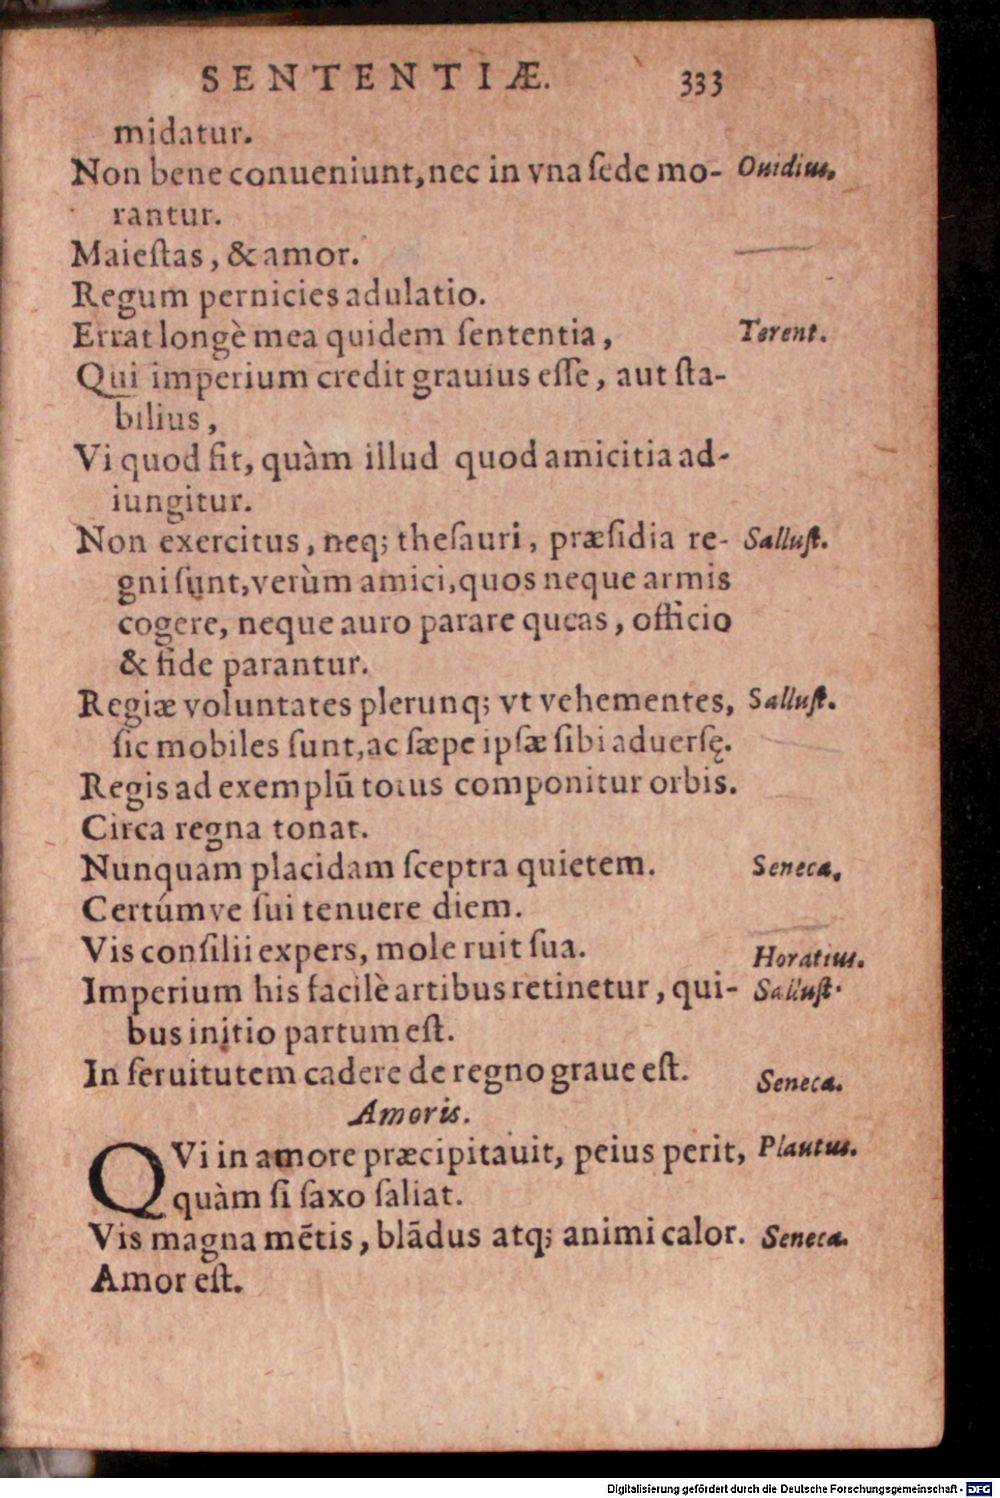 SENTENTIÆ. 333
midatur.
Non bene conueniunt, nec in vna ſede mo- Ouidius.
rantur.
Maieſtas, & amor.
Regum pernicies adulatio.
Errat longè mea quidem ſententia, Terent.
Qui imperium credit grauius eſſe, aut ſta-
bilius,
Vi quod fit, quàm illud quod amicitia ad-
iungitur.
Non exercitus, neq; theſauri, præſidia re- Salluſt.
gni ſunt, verùm amici, quos neque armis
cogere, neque auro parare queas, officio
& fide parantur.
Regiæ voluntates plerunq; vt vehementes, Salluſt.
ſic mobiles ſunt, ac ſæpe ipſæ ſibi aduerſę.
Regis ad exemplū totus componitur orbis.
Circa regna tonat.
Nunquam placidam ſceptra quietem. Seneca.
Certúmve ſui tenuere diem.
Vis conſilii expers, mole ruit ſua. Horatius.
Imperium his facilè artibus retinetur, qui- Salluſt.
bus initio partum eſt.
In ſeruitutem cadere de regno graue eſt. Seneca.
Amoris.
QVi in amore præcipitauit, peius perit, Plautus.
quàm ſi ſaxo ſaliat.
Vis magna mētis, blādus atq; animi calor. Seneca.
Amor eſt.
Digitalisierung gefördert durch die Deutsche Forschungsgemeinschaft - DFG